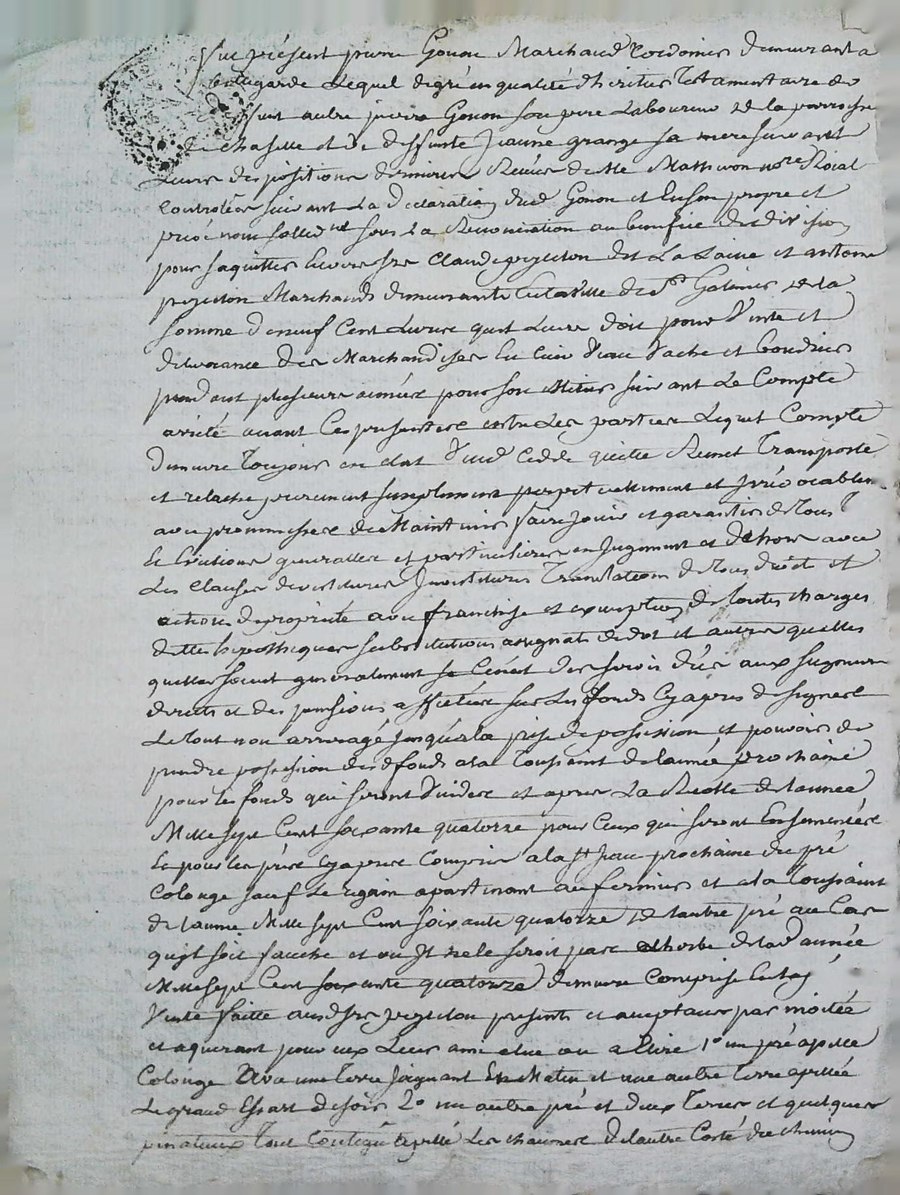 fut présent pierre Gonon Marchand Cordonier demeurant a
bellegarde Lequel de gré en qualité dheritier Testamentaire de
autre pierre Gonon son pere Laboureur de la parroisse
de chaselle et de deffunte Jeanne grange sa mere suivant
Leurs dispositions dernieres Receües de Me Mathevon nore Roial
Controlées suivant La Declaration dud Gonon et En son propre et
privé nom sollidt sous La Renonciation au benefice de division
pour saquitter Envers srs Claude pejetton dit La Laine et antoine
pejetton Marchands demeurants En la Ville de st Galmier de la
somme de neuf Cent Livres quil Leurs doit pour Vente et
delivrance des Marchandises En Cuir Veau Vache et boudrier
pendant plusieurs années pour son Metier suivant Le Compte
arrêté avant Ces presentes entre Les parties Lequel Compte
demeure Toujours en etat Vend Cedde quitte Remet Transporte
et relache purement simplement perpetuellement et jrrévocablem
avec promesses de Maintenir faire jouir et garantir de Tous
Et Evictions generalles et particulieres en Jugement et dehors avec
Les Clauses devestitures Jnvestitures Translations de Tous droits et
actions de proprieté avec franchise et exemption de toutes charges
dettes hipotheques substitutions assignats de dot et autres quelles
quelles soient generalement sε Cenet des servis dûs aux seigneurs
directs et des pensions affectées sur Les fonds Cy apres designés
Le Tout non arreragé jusqua la prise de possession et pouvoir de
prendre possession desd fonds a la Toussaint de lannée prochaine
pour les fonds qui seront Vuides et apres La Recolte de lannée
Mille sept Cent soixante quatorze pour Ceux qui seront Ensemencés
Et pour les prés Cy apres Compris a la st Jean prochaine du pré
Colonge sauf Le regain apartenant au fermier et a la Toussaint
de lannée Mille sept Cent soixante quatorze de lautre pré au Cas
quil soit fauché et ou Jl ne le seroit pas a lherbe de lad année
Mille sept Cent soixante quatorze demeure Comprise En la
Vente faitte ausd srs pejetton presents et acceptans par moitié
et aquerant pour eux Leurs ami elue ou a Elire 1° un pré apellé
Colonge une terre joignant De Matin et une autre Terre apellée
Le grand Essart de soir 2° un autre pré et deux Terres et quelques
pinateaux Tout Contigu apellé Les chaumes de lautre Costé du chemin